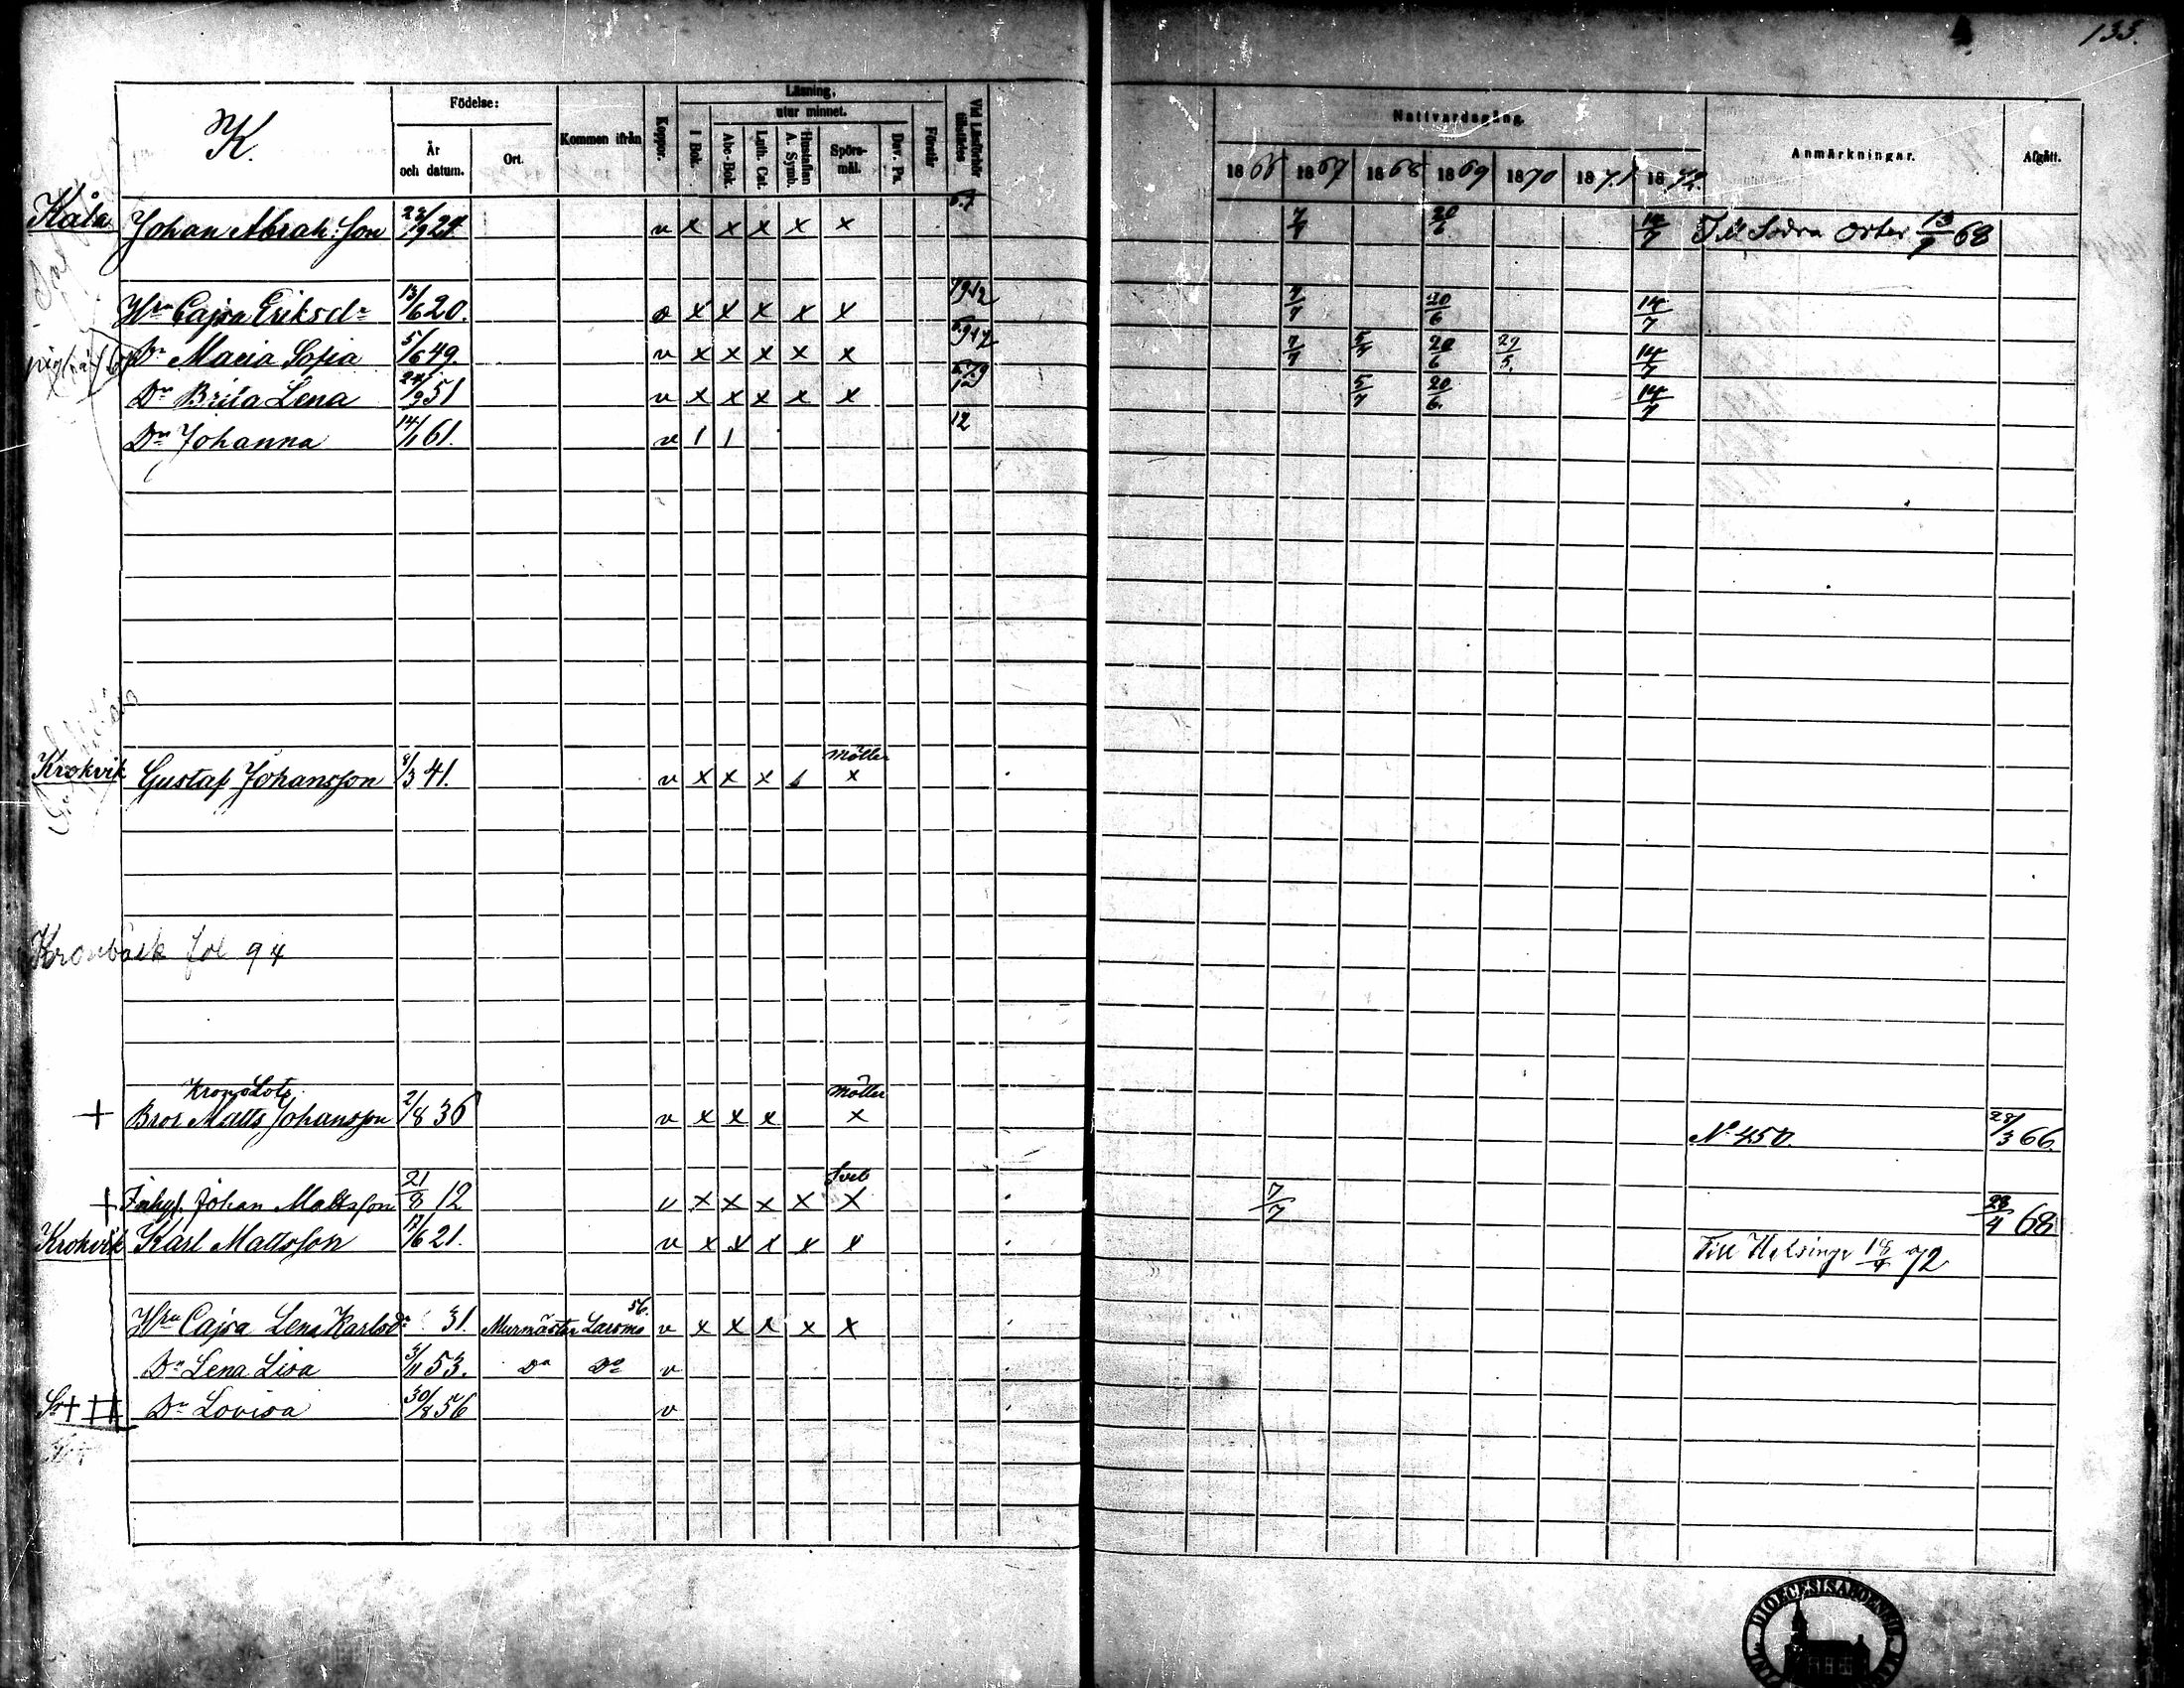 135.
K.
Födelse:
År och datum.
Ort.
Kommen ifrån
Koppor.
Läsning,
utur minnet.
I Bok.
Abc-Bok.
Luth. Cat.
Hustaflan A. Symb.
Spörsmål.
Dav. Ps.
Förstår
Vid Läsförhör
Nattvardsgång.
1866 1867 1868 1869 1870 1871 1872
Anmärkningar.
Afgått.
Kåla Johan Abrah:son 23/9 24 v x x x x x 7/7 20/6 14/7 Till Södra orter 13/9 68
Hu Cajsa Eriksdr 13/6 20. x x x x x 7/7 20/6 14/7
Dr Maria Sofia 5/6 49. v x x x x x 7/7 5/7 20/6 29/5. 14/7
Dr Brita Lena 24/9 51 v x x x x x 5/7 20/6. 14/7
Dr Johanna 14/1 61. v 1 1 12
Krokvik Gustaf Johansson 8/3 41. v x x x x Möller
Kronbäck fol 94
Krono Lots
+ Bror Matts Johansson 2/8 36 v x x x x Möller No 450. 28/3 66.
+ Inhys. Johan Mattsson 21/8 12 v x x x x x 7/7 28/4 68
Krokvik Karl Mattsson 17/6 21. v x x x x x Till Helsinge 18/9 72
Hu Cajsa Lena Karlsdr 31. Murmästar Larsmo 56. v x x x x x
Dr Lena Lisa 3/11 53. Do Do v
Dr Lovisa 30/8 56 v
DIOECESIS ABOENSIS